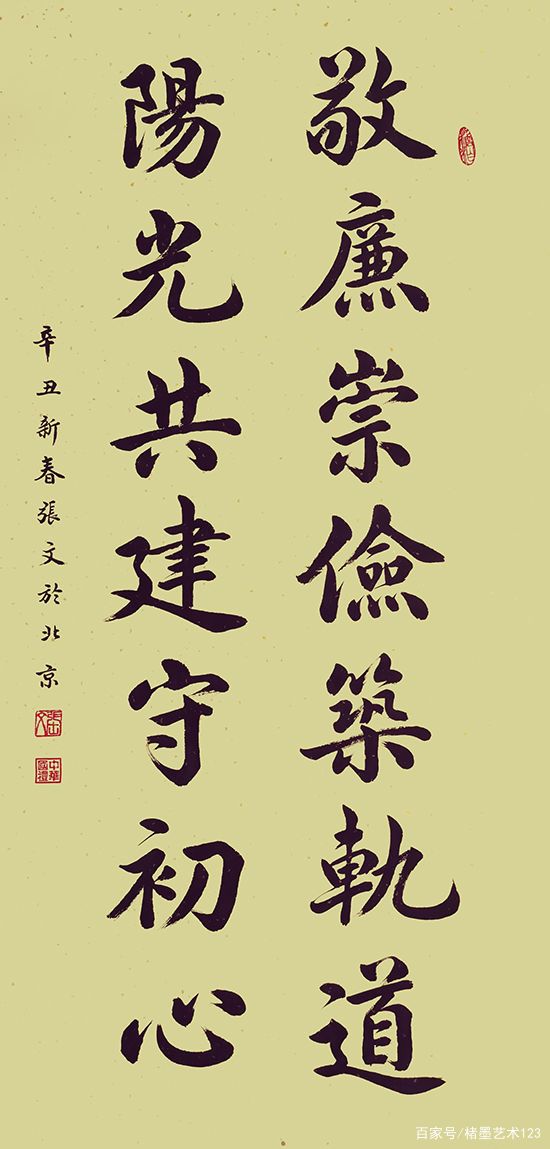 敬廉崇儉築軌道
陽光共建守初心
辛丑新春張文於北京
百家号/楮墨艺术123